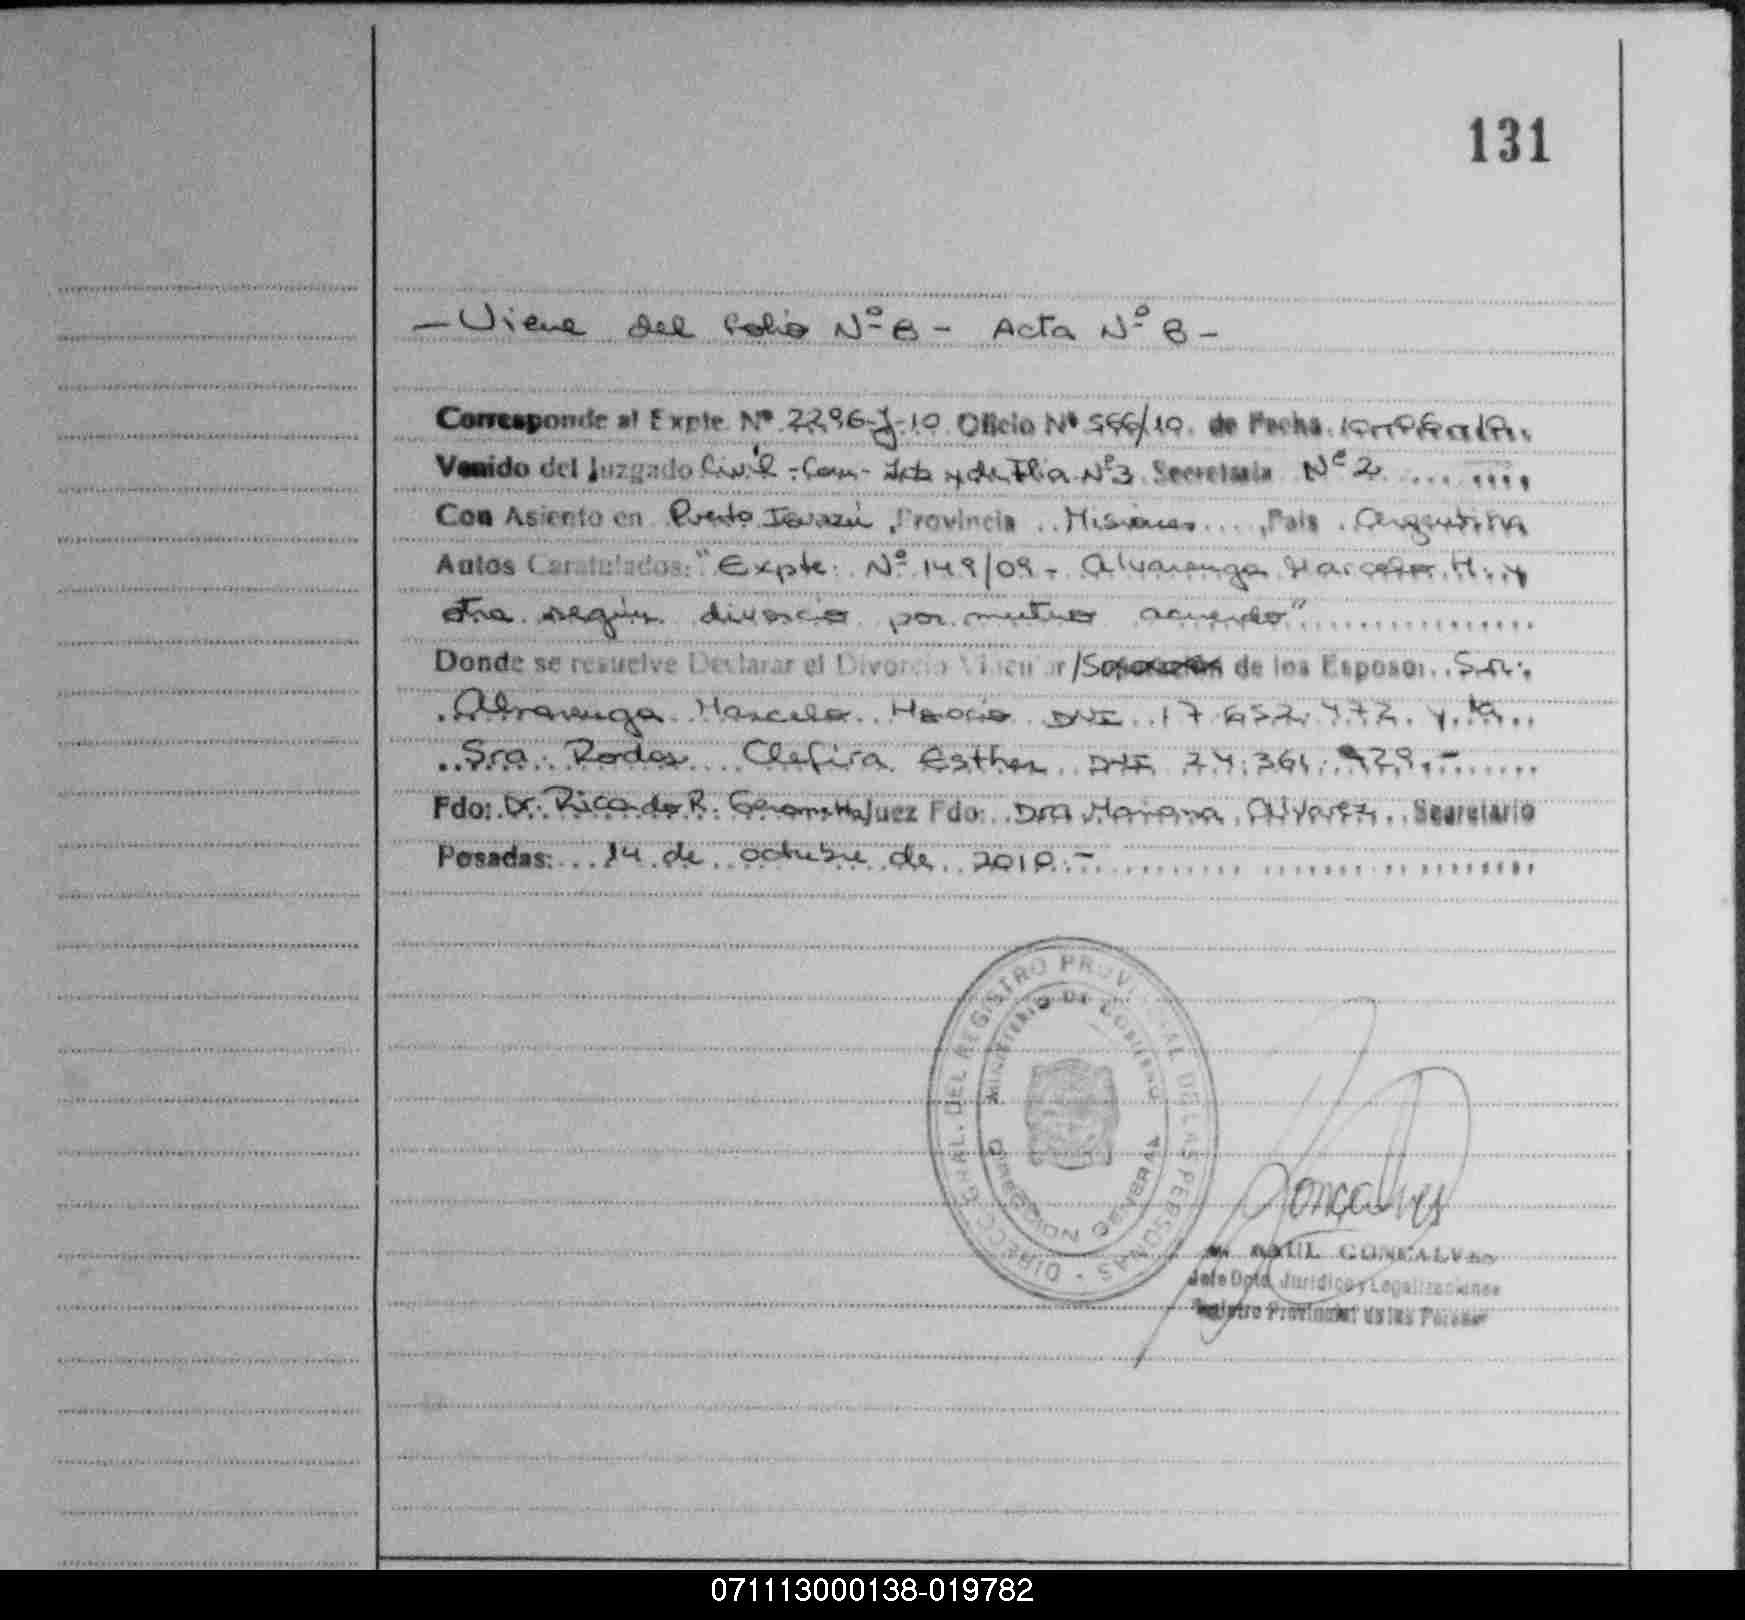 131
- Viene del folio Nº 8 - Acta Nº 8 -
Corresponde al Expte. Nº 2296-J-10 Oficio Nº 566/10. de Fecha
Venido del Juzgado Civil - Com - Lab y de Flia Nº 3 Secretaria Nº 2
Con Asiento en Puerto Iguazú, Provincia Misiones, Pais Argentina
Autos Caratulados: "Expte. Nº 149/09 - Alvarenga Marcelo H. y
otra según divorcio por mutuo acuerdo"
Donde se resuelve Declarar el Divorcio Vincular/Separación de los Esposos Sr.
Alvarenga Marcelo Horacio DNI 17.652.472 y la
Sra. Rodas Clefira Esther DNI 24.361.929.-
Fdo: Dr. Ricardo R. Juez Fdo: Dra Mariana Alvarez Secretario
Posadas: 14 de octubre de 2010.-
DIRECC. GRAL. DEL REGISTRO PROVINCIAL DE LAS PERSONAS
MINISTERIO DE GOBIERNO
Goncalves
RAUL GONCALVES
Jefe Dpto. Juridico y Legalizaciones
Registro Provincial de las Personas
071113000138-019782